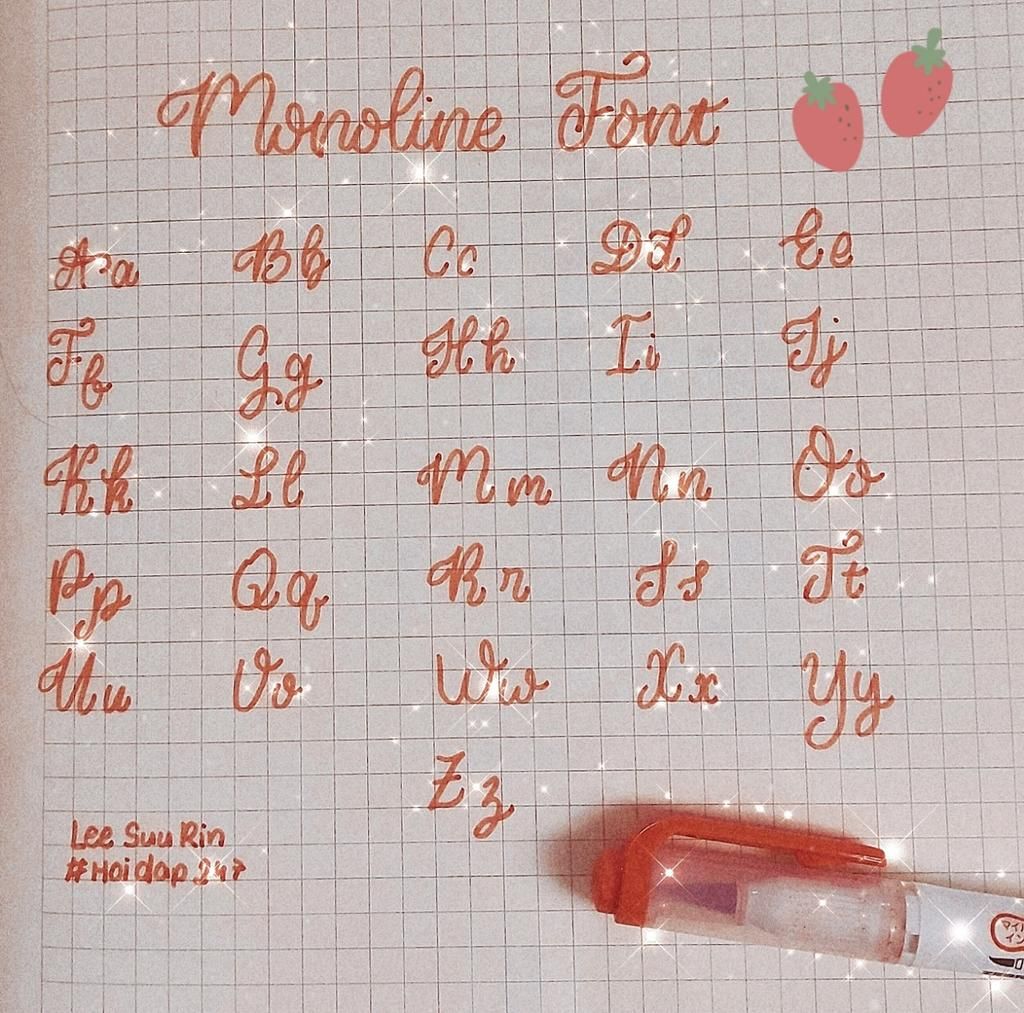 Monoline Font
Aa Bb Cc Dd Ee
Ff Gg Hh Ii Jj
Kk Ll Mm Nn Oo
Pp Qq Rr Ss Tt
Uu Vv Ww Xx Yy
Zz
Lee Suu Rin
#Hoidap247
マイル
イン